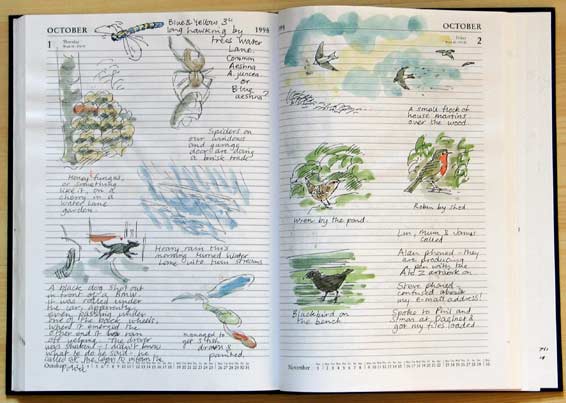 OCTOBER 1998
1 Thursday
Blue & Yellow 3"
long hawking by
trees Water
Lane.
Common
Aeshna
A. juncea
or
Blue
aeshna?
Spiders on
our windows
and garage
door are doing
a brisk trade
Honey fungus,
or something
like it, on a
cherry in a
Water Lane
garden.
Heavy rain this
morning turned Water
Lane into twin streams
A black dog shot out
in front of a BMW.
It was rolled under
the car, apparently
even passing under
one of the back wheels,
when it emerged the
other end it ran
off yelping. The driver
was shaken - I didn't know
what to do he said - he
called at the
managed to
get 3 fish
drawn &
painted.
October
1998 OCTOBER
Friday 2
A small flock of
house martins
over the wood.
Wren by the pond.
Robin by shed
Blackbird on
the bench
Lin, Mum, & James
called
Alan phoned - they
are producing
a pen with the
A to Z artwork on
Steve phoned -
confused about
my e-mail address!
Spoke to Phil and
Simon at Daelnet &
got my files loaded
November